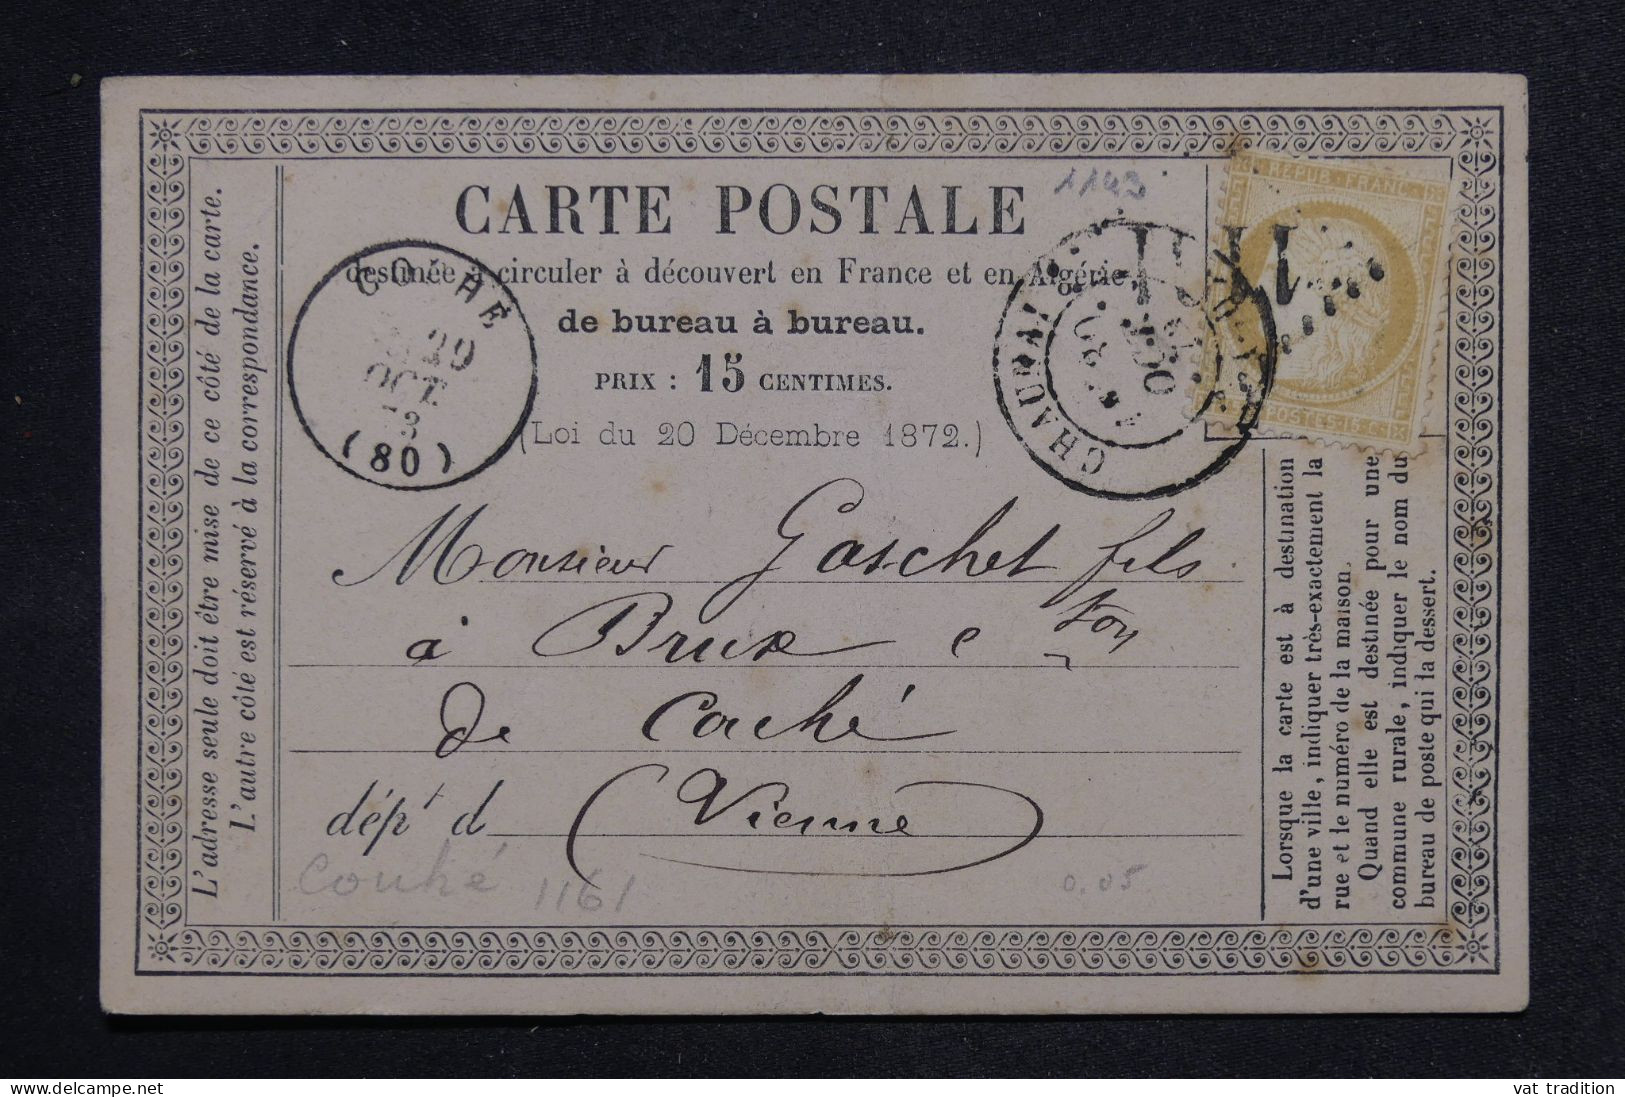 CARTE POSTALE
destinée à circuler à découvert en France et en Algérie
de bureau à bureau.
PRIX : 15 CENTIMES.
(Loi du 20 Décembre 1872.)
1143
REPUB. FRANC.
POSTES 15 C
COUHÉ
29
OCT.
73
(80)
CHAURAY
OCT.
L'adresse seule doit être mise de ce côté de la carte.
L'autre côté est réservé à la correspondance.
Monsieur Gaschet fils
à Brux c ton
de Couhé
dép^t d Vienne
Couhé 1161
0.05
Lorsque la carte est à destination
d'une ville, indiquer très-exactement la
rue et le numéro de la maison.
Quand elle est destinée pour une
commune rurale, indiquer le nom du
bureau de poste qui la dessert.
vat tradition